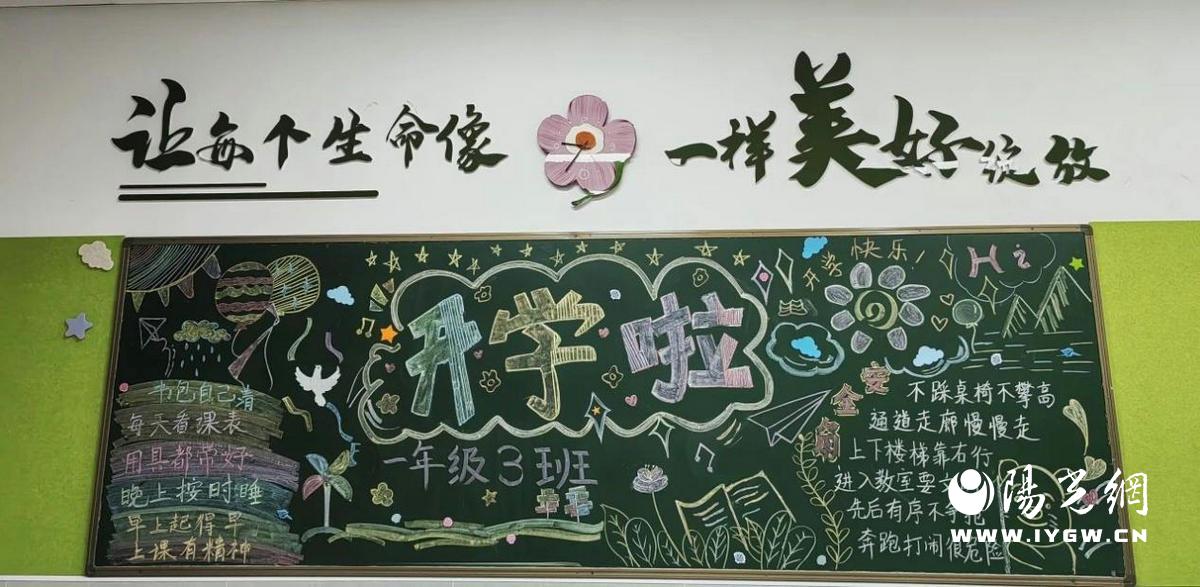 让每个生命像 一样美好绽放
开学快乐！
Hi
开学啦
一年级3班
书包自己背
每天看课表
用具都带好
晚上按时睡
早上起得早
上课有精神
安全角
不踩桌椅不攀高
通道走廊慢慢走
上下楼梯靠右行
进入教室要文
先后有序不争抢
奔跑打闹很危险
陽光網
WWW.IYGW.CN